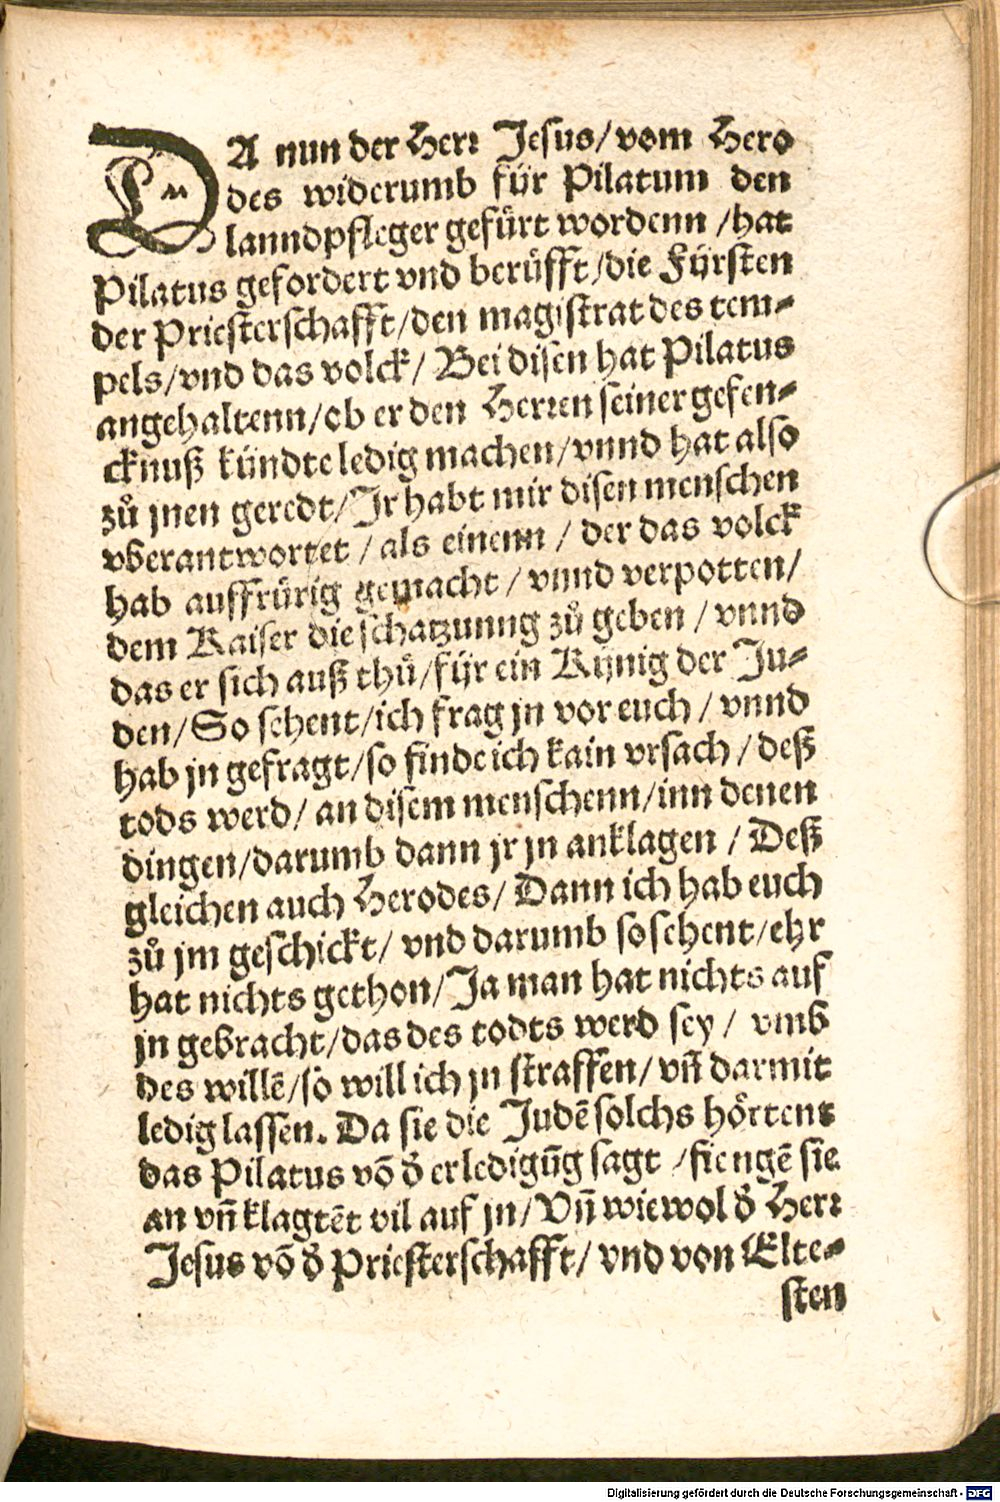 DA nun der Herr Jesus/ vom Hero
des widerumb für Pilatum den
lanndpfleger gefürt wordenn /hat
Pilatus gefordert vnd berüfft/die Fürsten
der Priesterschafft/den magistrat des tem⸗
pels/vnd das volck/ Bei disen hat Pilatus
angehaltenn/ob er den Herren seiner gefen⸗
cknuß kündte ledig machen/vnnd hat also
zů jnen geredt/Jr habt mir disen menschen
vberantwortet /als einenn / der das volck
hab auffrürig gemacht / vnnd verpotten/
dem Kaiser die schatzunng zů geben / vnnd
das er sich auß thů/für ein Künig der Ju⸗
den/So sehent/ich frag jn vor euch / vnnd
hab jn gefragt/so finde ich kain vrsach / deß
tods werd/ an disem menschenn/inn denen
dingen/darumb dann jr jn anklagen / Deß
gleichen auch Herodes/ Dann ich hab euch
zů jm geschickt/ vnd darumb so sehent/ehr
hat nichts gethon/Ja man hat nichts auf
jn gebracht/das des todts werd sey / vmb
des willē/so will ich jn straffen/ vñ darmit
ledig lassen. Da sie die Judē solchs hörtent
das Pilatus võ d̓ erledigũg sagt /fiengē sie
an vñ klagtēt vil auf jn/ Vñ wiewol d̓ Herr
Jesus võ d̓ Priesterschafft/ vnd von Elte⸗
sten
Digitalisierung gefördert durch die Deutsche Forschungsgemeinschaft - DFG